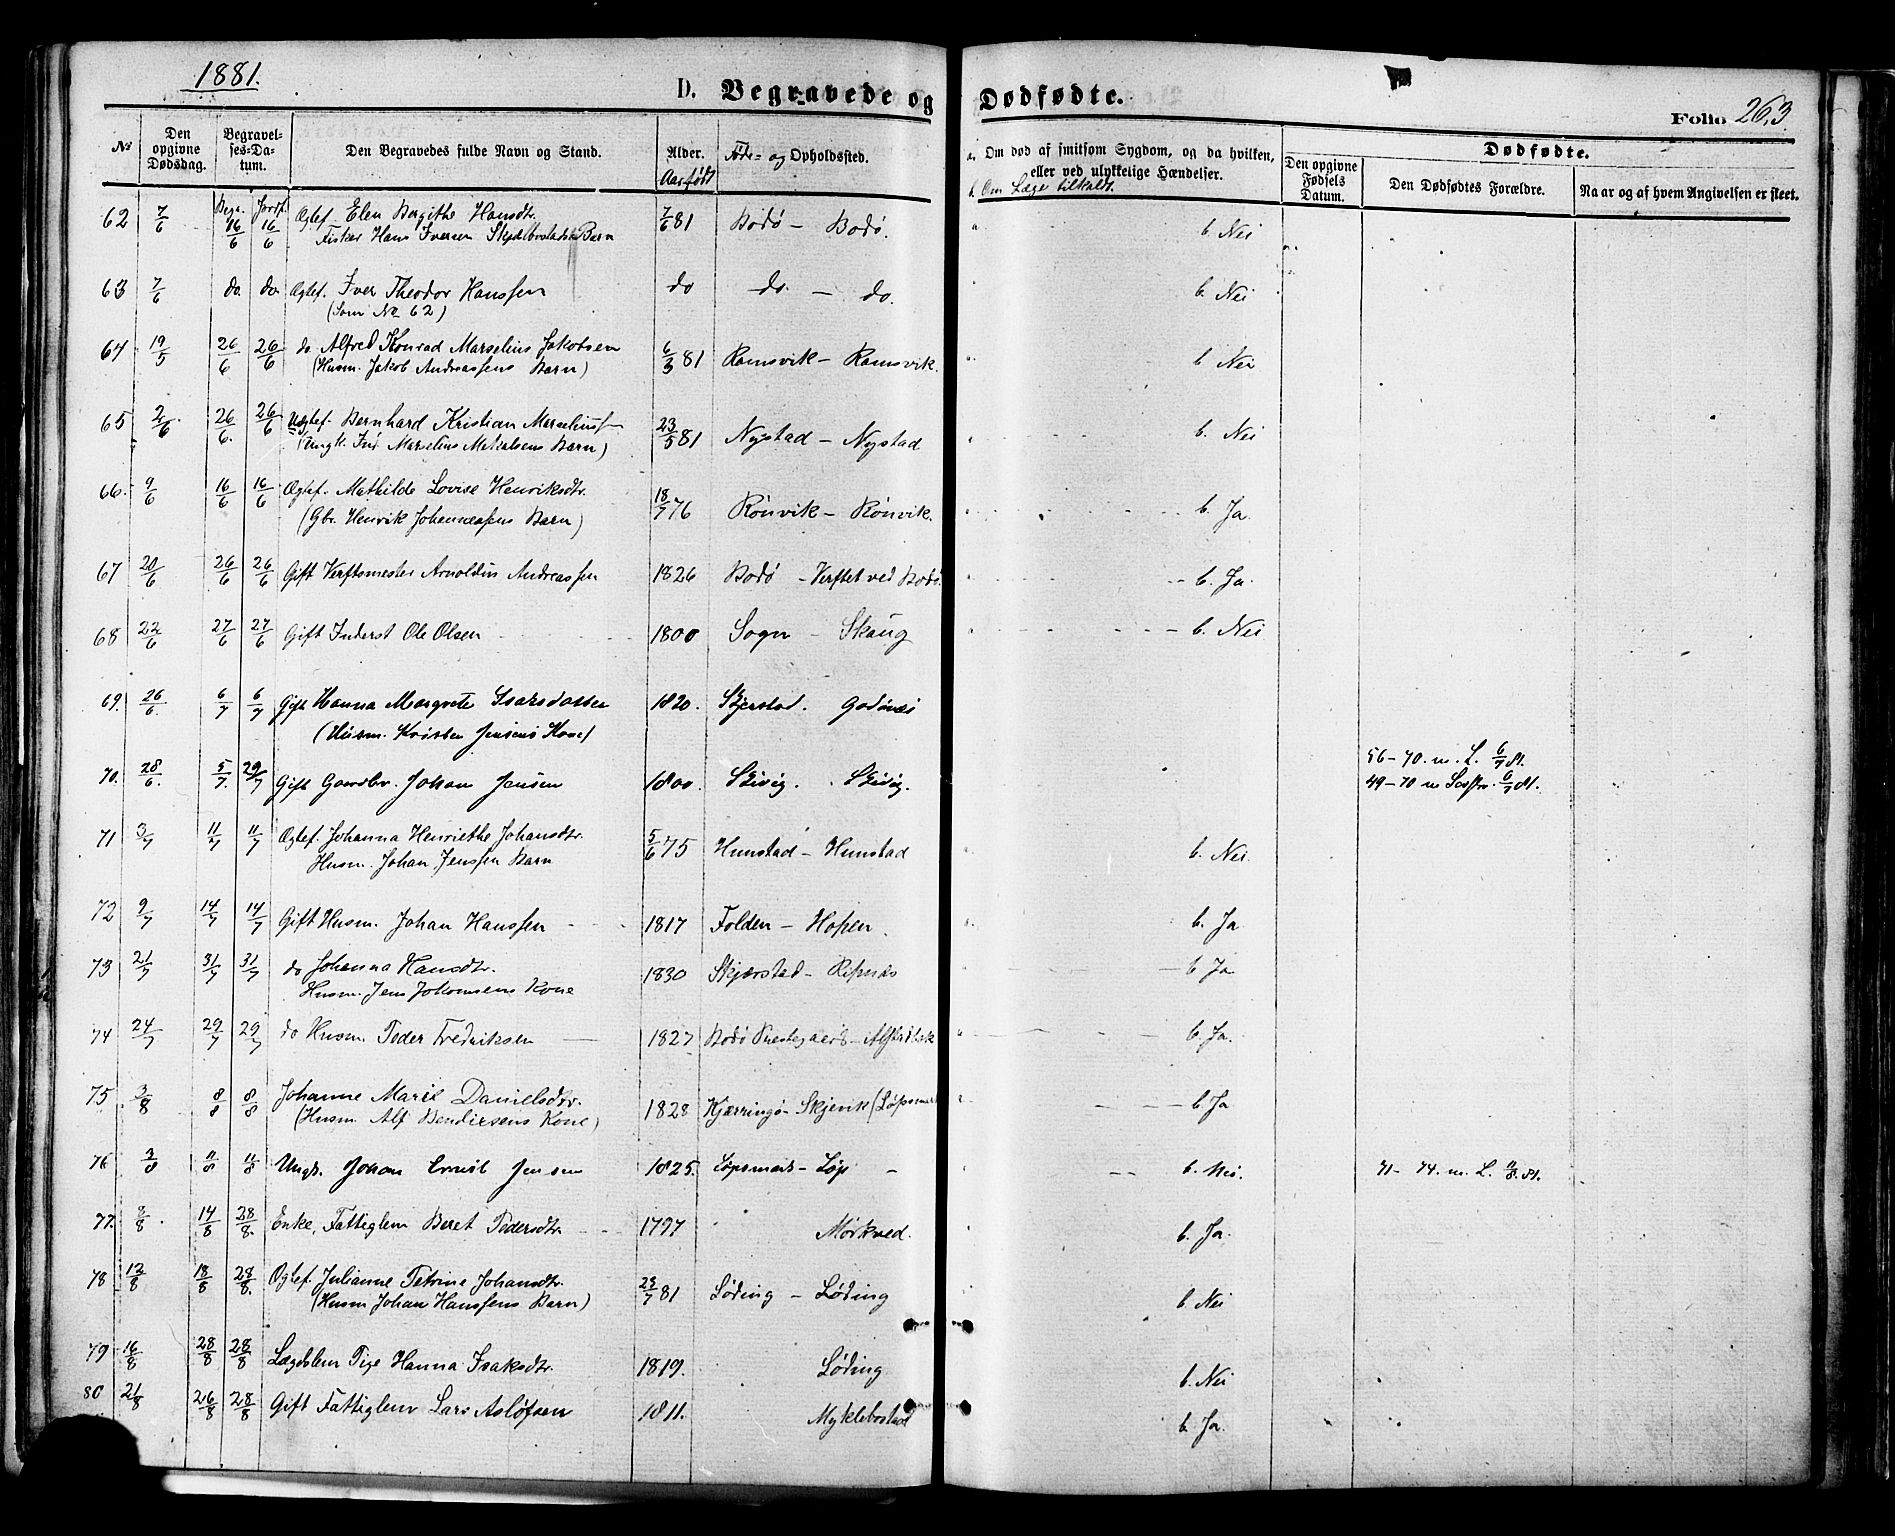 1881.
D. Begravede og Dødfødte.
Folio 263
№
Den opgivne Dødsdag.
Begravelses-Datum.
Den Begravedes fulde Navn og Stand.
Alder. Aar født
Føde- og Opholdssted.
a. Om død af smitsom Sygdom, og da hvilken, eller ved ulykkelige Hændelser.
b. Om Læge tilkaldt.
Den opgivne Fødsels Datum.
Dødfødte.
Den Dødfødtes Forældre.
Naar og af hvem Angivelsen er skeet.
Begr. Jordf.
62 7/6 16/6 16/6 Ægtef. Elen Bergithe Hansdtr. 7/6 81 Bodø - Bodø. b. Nei
Fisker Hans Iversen Skjelbostads Barn
63 7/6 do. do. Ægtef. Iver Theodor Hanssen do do. - do. b. Nei
(Som No 62)
64 19/5 26/6 26/6 do Alfred Konrad Marselius Jakobsen 6/3 81 Ramsvik - Ramsvik. b. Nei
(Husm. Jakob Andreassens Barn)
65 2/6 26/6. 26/6 Uægtef. Bernhard Kristian Marselius 23/5 81 Nystad - Nystad b. Nei
(Ungk. Marselius Barn)
66. 9/6 16/6 16/6 Ægtef. Mathilde Lovise Henriksdtr. 18/7 76 Rønvik - Rønvik. b. Ja.
(Gbr. Henrik Johannessens Barn)
67 20/6 26/6 26/6 Gift Verftsmester Arnoldus Andreassen 1826 Bodø - Verftet ved Bodø. b. Ja.
68 22/6 27/6 27/6 Gift Inderst Ole Olsen 1800 Sogn - Skaug b. Nei
69. 26/6. 6/7 6/7 Gift Hanna Margrete Isaksdatter 1820. Skjerstad. Godønes
(Husm. Kristen Jensens Kone)
56-70. m. L. 6/7 81.
70. 28/6. 5/7. 29/7 Gift Gaardbr. Johan Jensen 1800. Skivig. Skivig. 49-70 m 6/7 81.
71 3/7 11/7 11/7 Ægtef. Johanna Henriethe Johansdtr. 5/6 75 Hunstad - Hunstad b. Nei.
Husm. Johan Jenssen Barn
72 9/7 14/7 14/7 Gift Husm. Johan Hanssen 1817 Folden - Hopen. b. Ja
73 21/7 31/7 31/7 do Johanna Hansdtr. 1830 Skjærstad - Ripnæs b Ja
Husm. Jens Jakobsens Kone
74 24/7 29/7 29/7 do Husm. Peder Fredriksen 1827 Bodø Prestegaard - b Ja.
75 3/8 8/8 8/8 Johanne Marie Danielsdtr. 1828 Kjærringø - Skjevik (Løpsmark b Ja
(Husm. Alf Bendixsens Kone)
76 3/8 11/8 11/8 Ungk. Johan Ernst Jensen 1825. Løpsmark - Løp - b. Nei. 71- 74. m. L. 11/8. 81.
77. 8/8. 14/8 28/8. Enke, Fattiglem Beret Pedersdtr. 1797 Mørkved. b. Ja.
78 12/8 18/8 28/8. Ægtef. Julianne Petrine Johansdtr. 23/7 81 Løding - Løding b Nei
(Husm Johan Hanssens Barn)
79 16/8 28/8 28/8 Lægdslem Pige Hanna Isaksdtr. 1819. Løding b. Nei
80 21/8 26/8 28/8 Gift Fattiglem Lars Asløfsen 1811. Myklebostad b Ja.